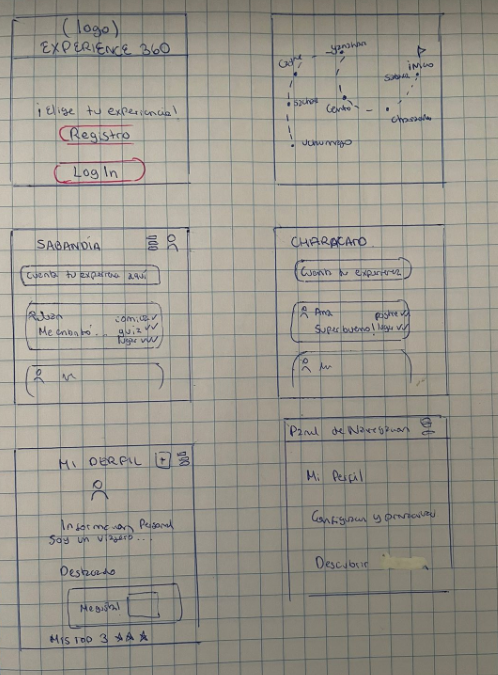 (logo)
EXPERIENCE 360
¡Elige tu experiencia!
Registro
Log In
Yanahuara
inicio
Characato
SABANDÍA
Cuenta tu experiencia aquí
Me encantó...
comida ✓
guía ✓✓
lugar ✓✓✓
CHARACATO
Cuenta tu experiencia
Ana
Super bueno! lugar ✓✓
MI PERFIL +
Información Personal
Soy un viajero...
Destacado
MIS TOP 3 ★★★
Panel de Navegación
Mi Perfil
Configuración y
Descubrir